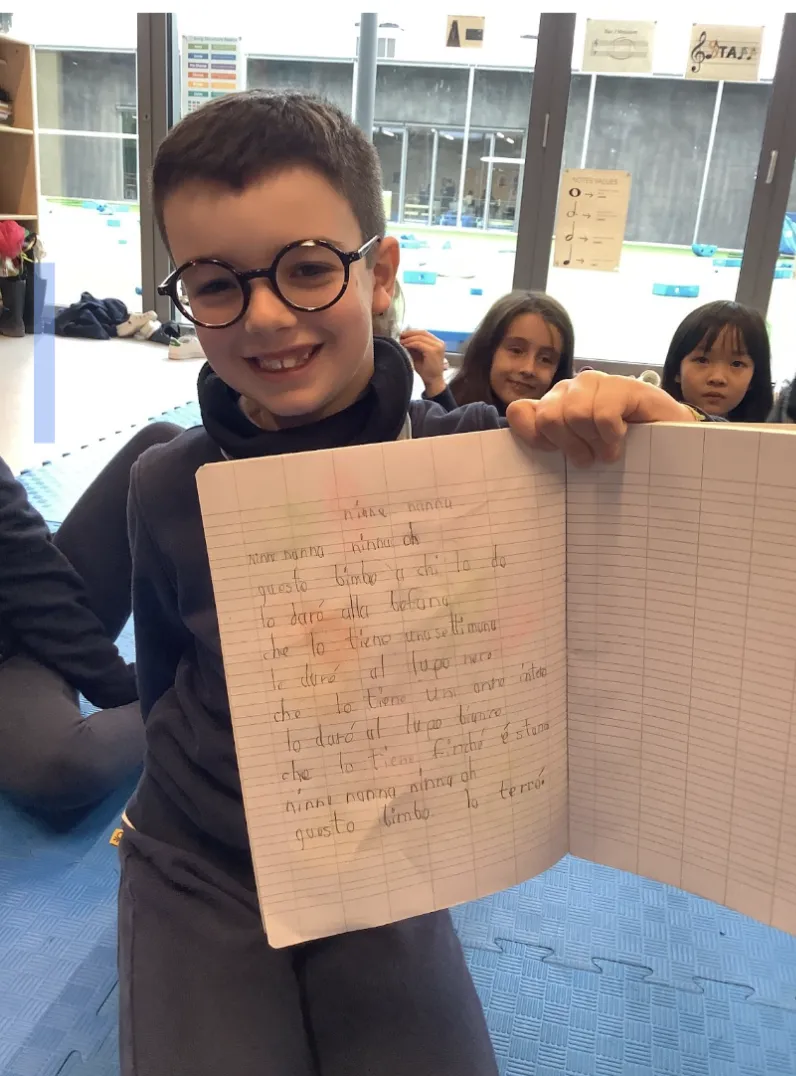 STAFF
NOTES VALUES
ninna nanna
ninna nanna ninna oh
questo bimbo a chi lo do
lo daró alla befana
che lo tiene una settimana
lo daró al lupo nero
che lo tiene un anno intero
lo daró al lupo bianco
che lo tiene finché é stanco
ninna nanna ninna oh
questo bimbo lo terró.